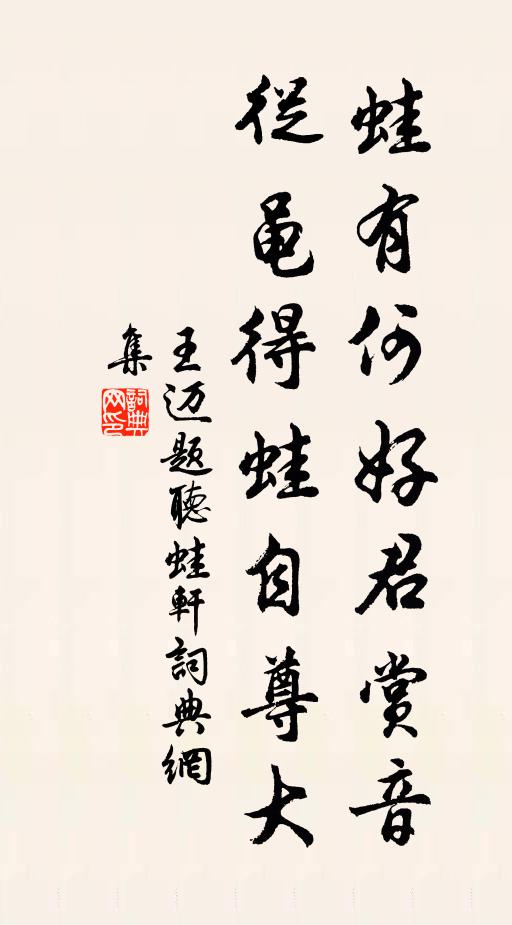 蛙有何好君賞音
從黽得蛙自尊大
王迈题聽蛙軒詞典網
集
詞典
网印